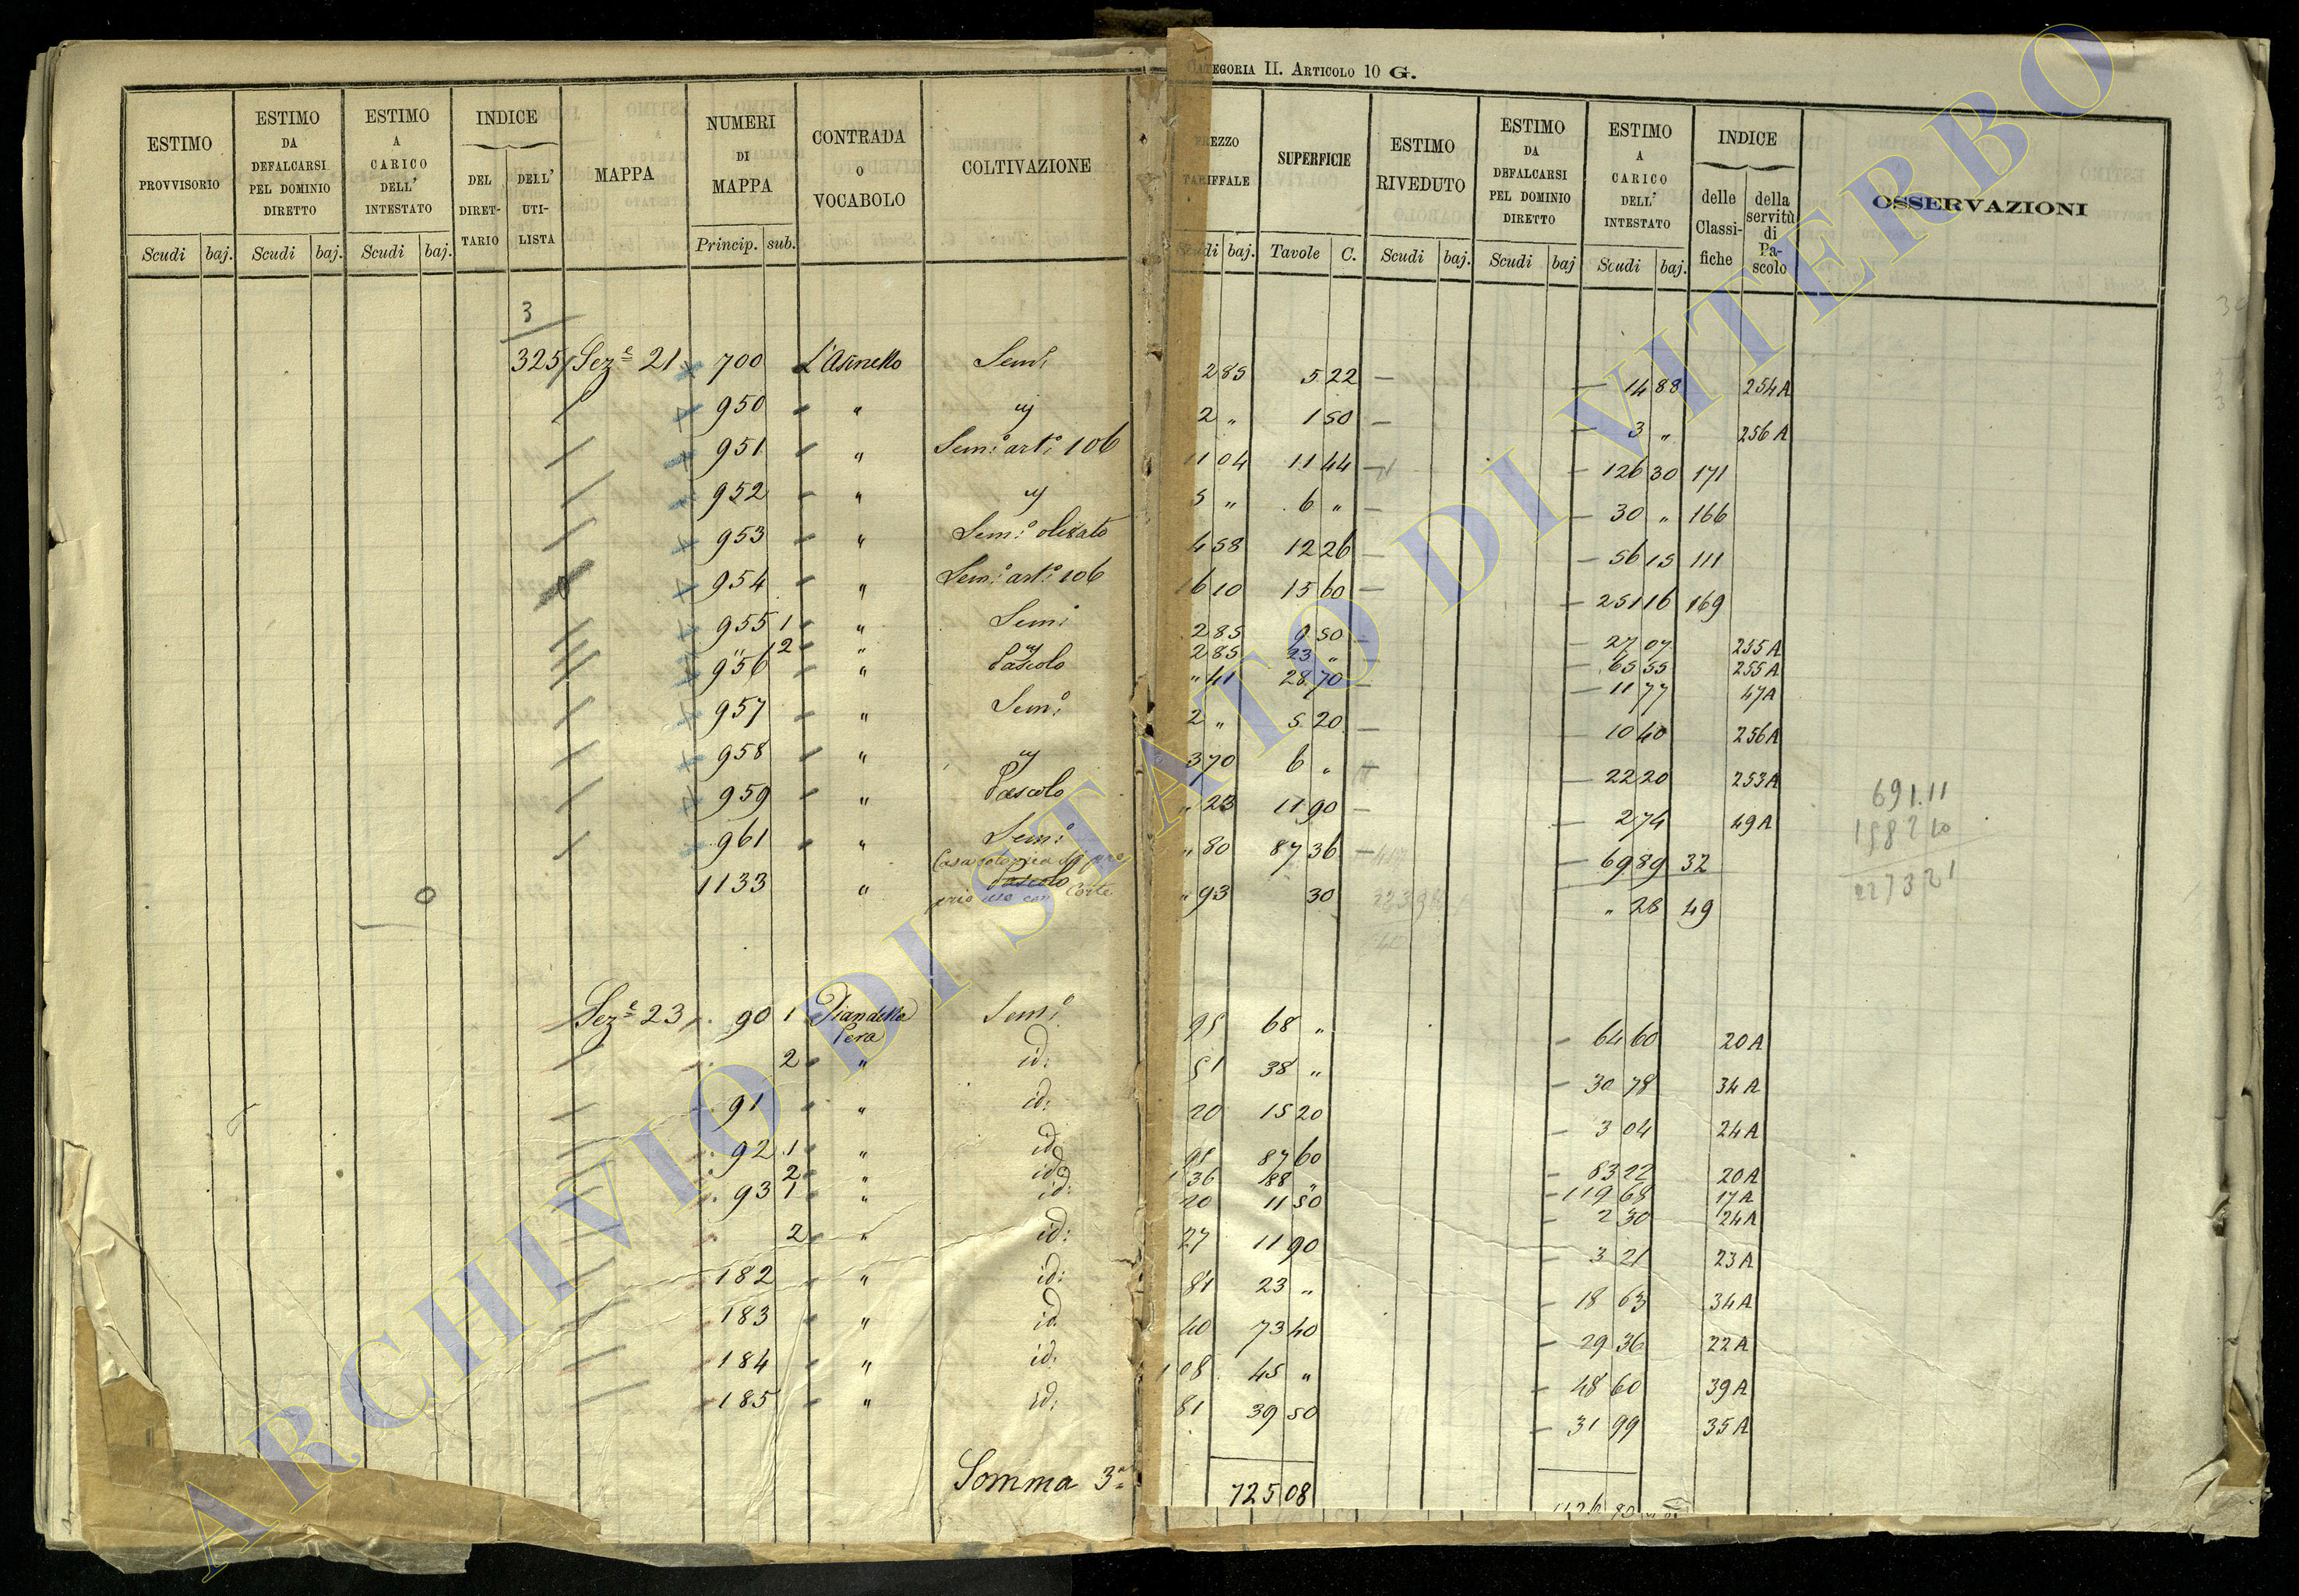 CATEGORIA II. ARTICOLO 10 G.
ESTIMO PROVVISORIO
ESTIMO DA DEFALCARSI PEL DOMINIO DIRETTO
ESTIMO A CARICO DELL' INTESTATO
INDICE
DEL DIRETTARIO
DELL' UTILISTA
MAPPA
NUMERI DI MAPPA
CONTRADA O VOCABOLO
COLTIVAZIONE
PREZZO TARIFFALE
SUPERFICIE
ESTIMO RIVEDUTO
ESTIMO DA DEFALCARSI PEL DOMINIO DIRETTO
ESTIMO A CARICO DELL' INTESTATO
INDICE
delle Classifiche
della servitù di Pascolo
OSSERVAZIONI
Scudi baj. Scudi baj. Scudi baj. Princip. sub. Scudi baj. Tavole C. Scudi baj. Scudi baj Scudi baj.
3
325 Sez.e 21 700 L'Asinello Sem.o 2 85 5 22 — — 14 88 254A
950 " id 2 " 1 50 — — 3 " 256A
951 " Sem.o art.o 106 11 04 11 44 — — 126 30 171
952 " id 5 " 6 " — — 30 " 166
953 " Sem.o olivato 4 58 12 26 — — 56 15 111
954 " Sem.o art.o 106 16 10 15 60 — — 251 16 169
955 1 " Sem.o 2 85 9 50 — — 27 07 255A
" 2 " id 2 85 23 " — — 65 55 255A
956 " Pascolo " 41 28 70 — — 11 77 47A
957 " Sem.o 2 " 5 20 — — 10 40 256A
958 " id 3 70 6 " — — 22 20 253A
959 " Pascolo " 23 11 90 — — 2 74 49A
961 " Sem.o " 80 87 36 — — 69 89 32
1133 " Pascolo " 93 30 " 28 49
Corte
691.11
1582 10
2273 21
Sez.e 23 90 1 Piandella Pera Sem.o 95 68 " — 64 60 20A
2 " id: 81 38 " — 30 78 34A
91 " id: 20 15 20 — 3 04 24A
92 1 " id: 95 87 60 — 83 22 20A
2 " id: 1 36 88 " — 119 68 17A
93 1 " id: 20 11 50 — 2 30 24A
2 " id: 27 11 90 — 3 21 23A
182 " id: 81 23 " — 18 63 34A
183 " id: 40 73 40 — 29 36 22A
184 " id: 1 08 45 " — 48 60 39A
185 " id: 81 39 50 — 31 99 35A
Somma 3a 725 08
ARCHIVIO DI STATO DI VITERBO